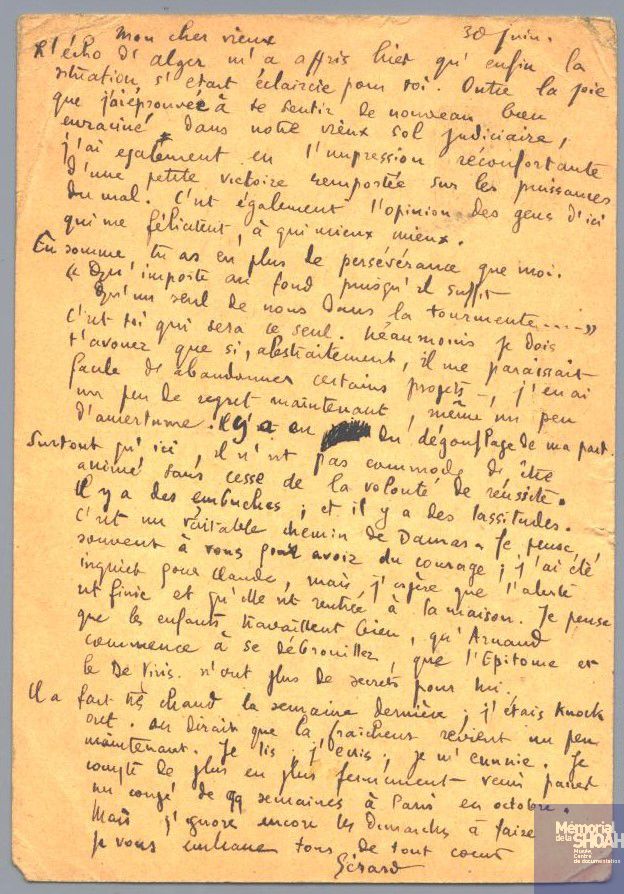 30 juin.
Mon cher vieux
L'écho d'alger m'a appris hier qu'enfin la
situation s'était éclaircie pour toi. Outre la joie
que j'ai éprouvée à te sentir de nouveau bien
enraciné dans notre vieux sol judiciaire,
j'ai également eu l'impression réconfortante
d'une petite victoire remportée sur les puissances
du mal. C'est également l'opinion des gens d'ici
qui me félicitent, à qui mieux mieux.
En somme, tu as eu plus de persévérance que moi.
"Qu'importe au fond puisqu'il suffit
Qu'un seul de nous dans la tourmente...."
C'est toi qui sera ce seul. Néanmoins je dois
t'avouer que si, abstraitement, il me paraissait
facile d'abandonner certains projets -, j'en ai
un peu de regret maintenant, même un peu
d'amertume. Il y a eu du dégonflage de ma part.
Surtout qu'ici, il n'est pas commode d'être
animé sans cesse de la volonté de réussite.
Il y a des embuches ; et il y a des lassitudes.
C'est un véritable chemin de Damas. Je pense
souvent à vous pour avoir du courage ; j'ai été
inquiet pour Claude, mais j'espère que l'alerte
est finie et qu'elle est rentrée à la maison. Je pense
que les enfants travaillent bien, qu'Arnaud
commence à se débrouiller, que l'Epitome et
le De Viris n'ont plus de secrets pour lui.
Il a fait très chaud la semaine dernière ; j'étais knock
out. On dirait que la fraîcheur revient un peu
maintenant. Je lis, j'écris, je m'ennuie. Je
compte de plus en plus fermement venir passer
un congé de qq semaines à Paris en octobre.
Mais j'ignore encore les démarches à faire
Je vous embrasse tous de tout coeur
Gérard
Mémorial
de la SHOAH
Musée, Centre
de documentation